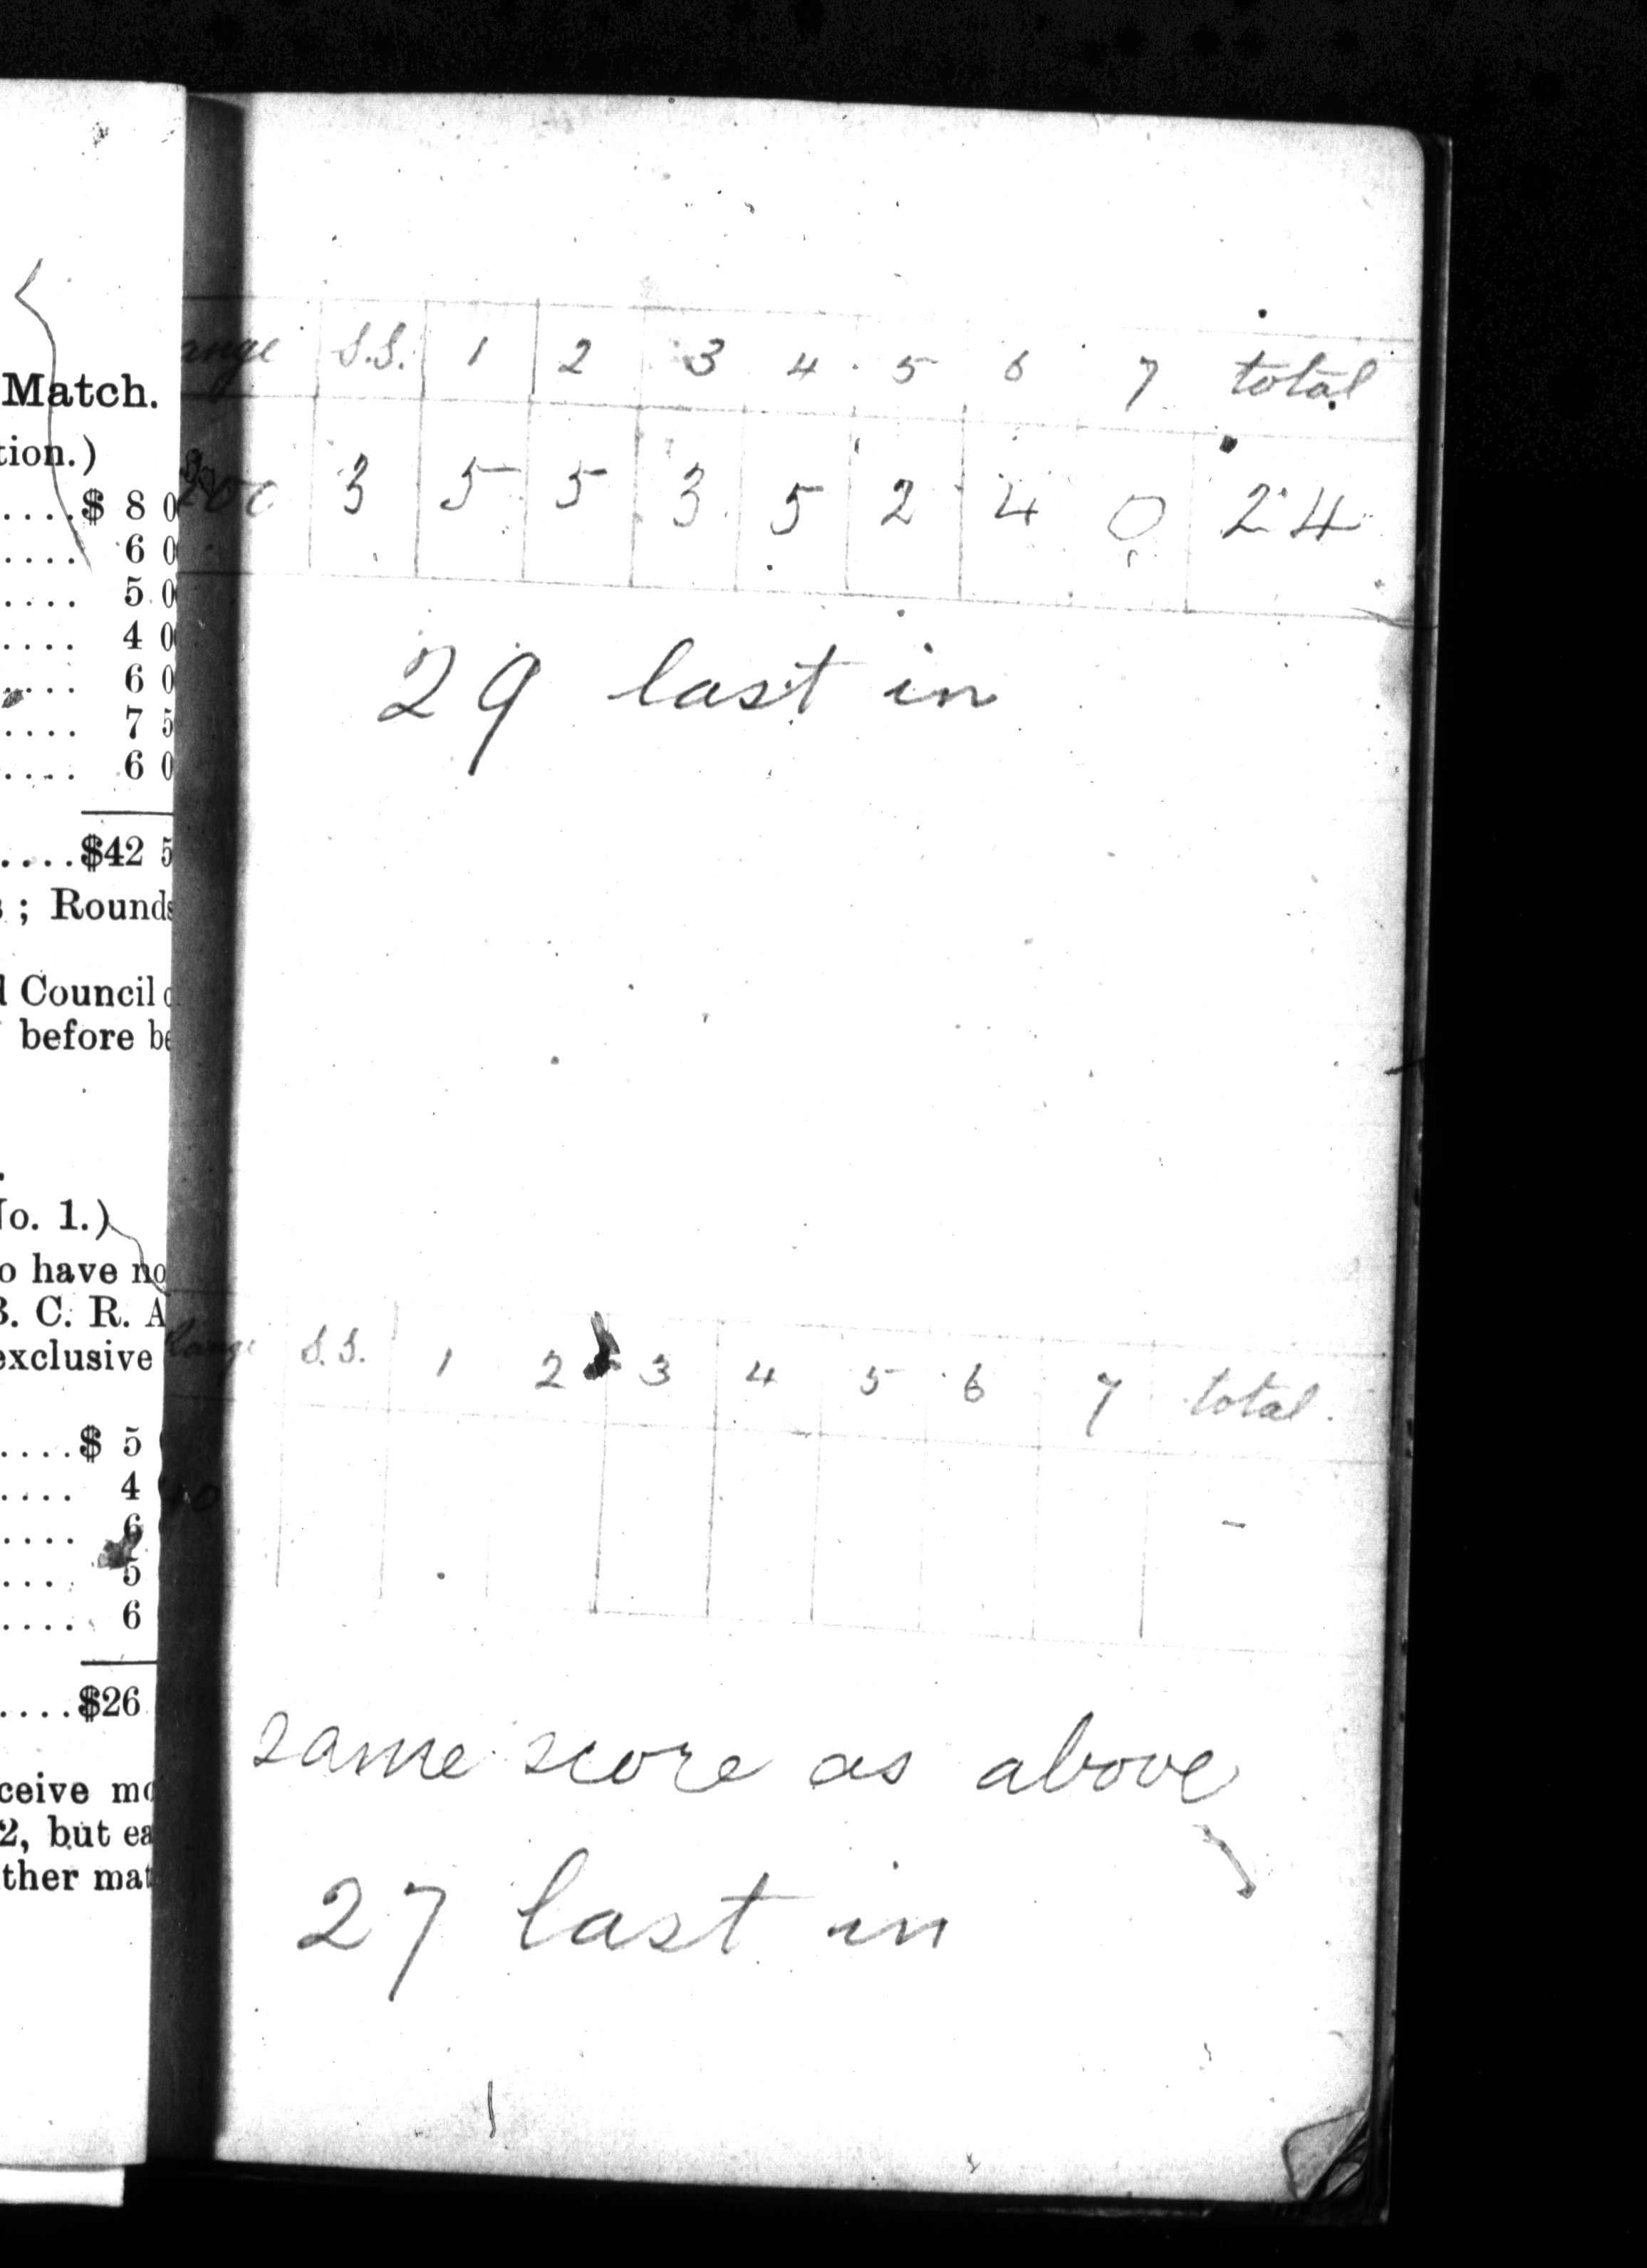 Match.
tion.)
....$ 8 0
.... 6 0
.... 5 0
.... 4 0
.... 6 0
.... 7 5
.... 6 0
....$42 5
; Rounds
Council
before be
No. 1.)
o have no
B. C. R. A
exclusive
....$ 5
.... 4
.... 6
.... 5
.... 6
....$26
ceive mo
2, but ea
ther mat
ange S.S. 1 2 3 4 5 6 7 total
3 5 5 3 5 2 4 0 24
29 last in
Range S.S. 1 2 3 4 5 6 7 total.
same score as above
27 last in